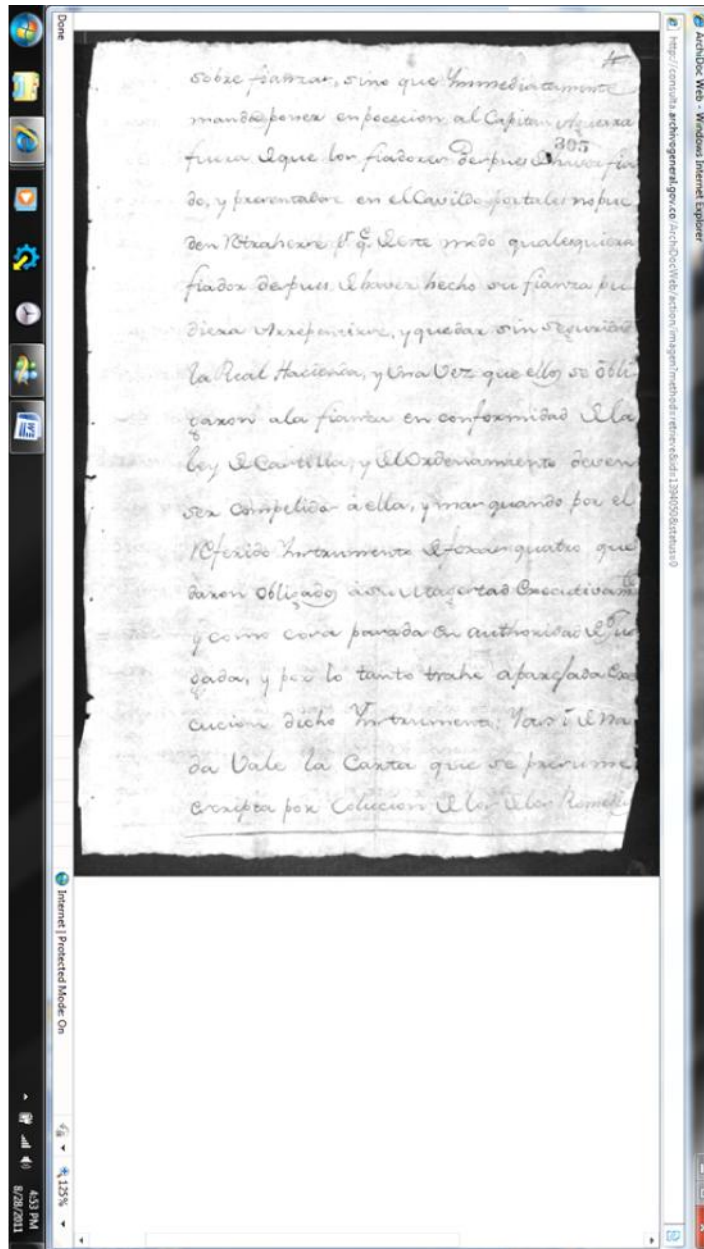 ArchiDoc Web - Windows Internet Explorer
http://consulta.archivogeneral.gov.co/ArchiDocWeb/action/imagen?method=retrieve&id=1394050&status=0
305
sobre fianzas, sino que Ymmediatamente
mande poner en pocecion al Capitan Aguerra
fuera de que los fiadores despues de haver fia
do, y presentadose en el Cavildo por tales no pue
den Retraherse pr. q.e de este modo qualesquiera
fiador despues de haver hecho su fianza pu
diera Arrepentirse, y quedar sin seguridad
la Real Hacienda, y Una Vez que ellos se obli
garon a la fianza en conformidad de la
Ley de Castilla, y del Ordenamiento deven
ser compelidos à ella, y mas quando por el
Referido Ynstrumento de foxas quatro que
daron obligados à su Magestad Executivam.te
y como cosa pasada en authoridad de
gada, y por lo tanto trahe aparejada Exe
cucion dicho Ynstrumento: Y assi de na
da Vale la Carta que se presume
escripta por Colucion de los de los
Done
Internet | Protected Mode: On
125%
4:53 PM
8/28/2011